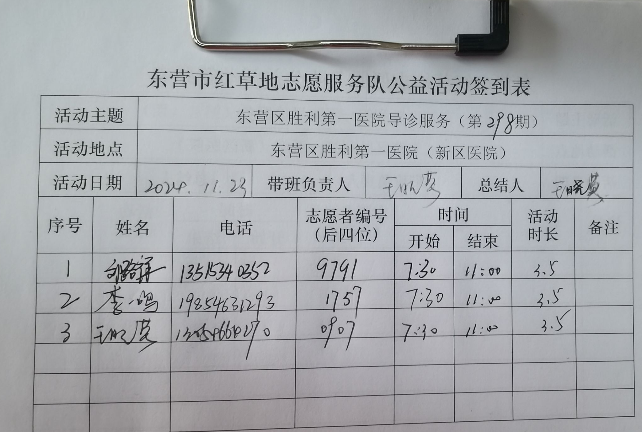 东营市红草地志愿服务队公益活动签到表
活动主题 东营区胜利第一医院导诊服务（第298期）
活动地点 东营区胜利第一医院（新区医院）
活动日期 2024.11.23 带班负责人 王晓英 总结人 王晓英
序号 姓名 电话 志愿者编号（后四位） 时间 开始 结束 活动时长 备注
1 13515340352 9791 7:30 11:00 3.5
2 李鸣 19854631293 1757 7:30 11:00 3.5
3 王晓英 0907 7:30 11:00 3.5